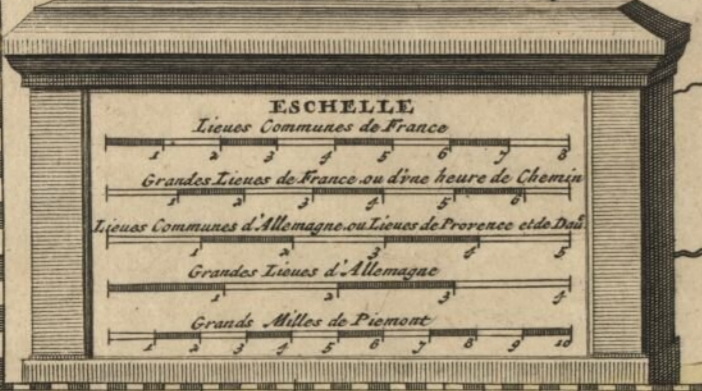 ESCHELLE
Lieues Communes de France
1 2 3 4 5 6 7 8
Grandes Lieues de France ou d'vne heure de Chemin
1 2 3 4 5 6
Lieues Communes d'Allemagne ou Lieues de Provence et de Dau.é
1 2 3 4 5
Grandes Lieues d'Allemagne
1 2 3 4
Grands Milles de Piemont
1 2 3 4 5 6 7 8 9 10